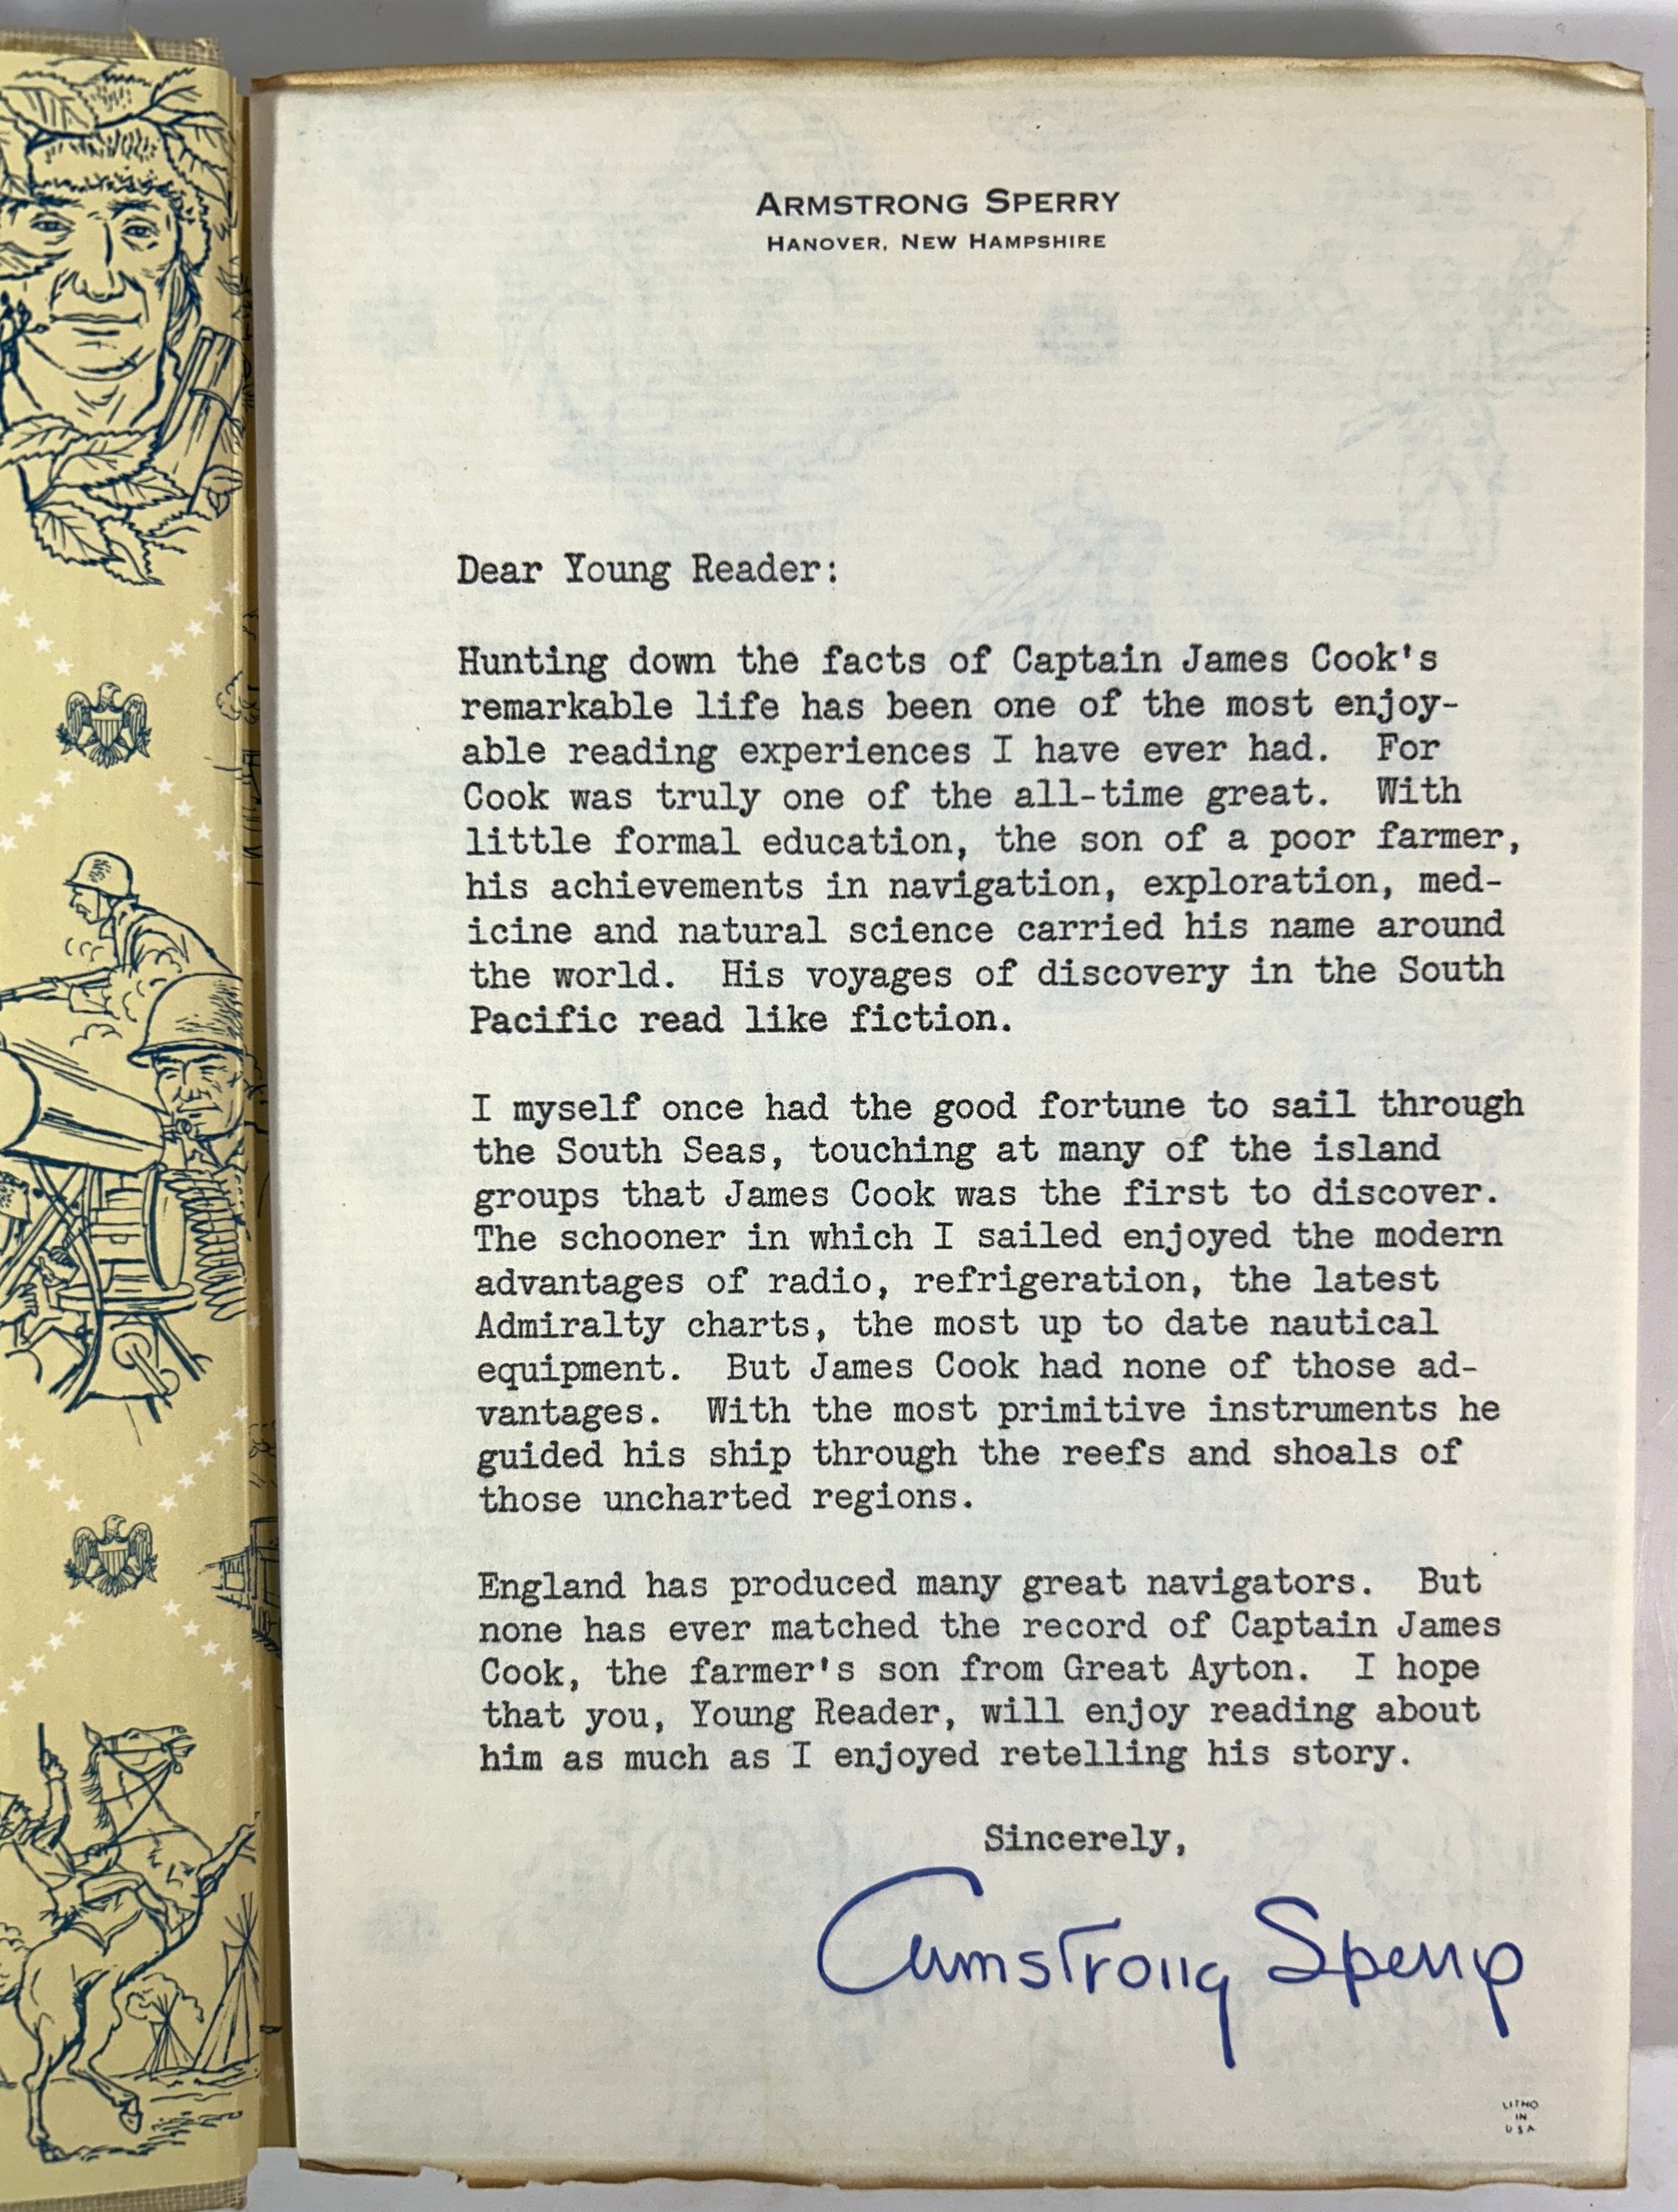 ARMSTRONG SPERRY
HANOVER, NEW HAMPSHIRE
Dear Young Reader:
Hunting down the facts of Captain James Cook's
remarkable life has been one of the most enjoy-
able reading experiences I have ever had. For
Cook was truly one of the all-time great. With
little formal education, the son of a poor farmer,
his achievements in navigation, exploration, med-
icine and natural science carried his name around
the world. His voyages of discovery in the South
Pacific read like fiction.
I myself once had the good fortune to sail through
the South Seas, touching at many of the island
groups that James Cook was the first to discover.
The schooner in which I sailed enjoyed the modern
advantages of radio, refrigeration, the latest
Admiralty charts, the most up to date nautical
equipment. But James Cook had none of those ad-
vantages. With the most primitive instruments he
guided his ship through the reefs and shoals of
those uncharted regions.
England has produced many great navigators. But
none has ever matched the record of Captain James
Cook, the farmer's son from Great Ayton. I hope
that you, Young Reader, will enjoy reading about
him as much as I enjoyed retelling his story.
Sincerely,
Armstrong Sperry
LITHO
IN
USA